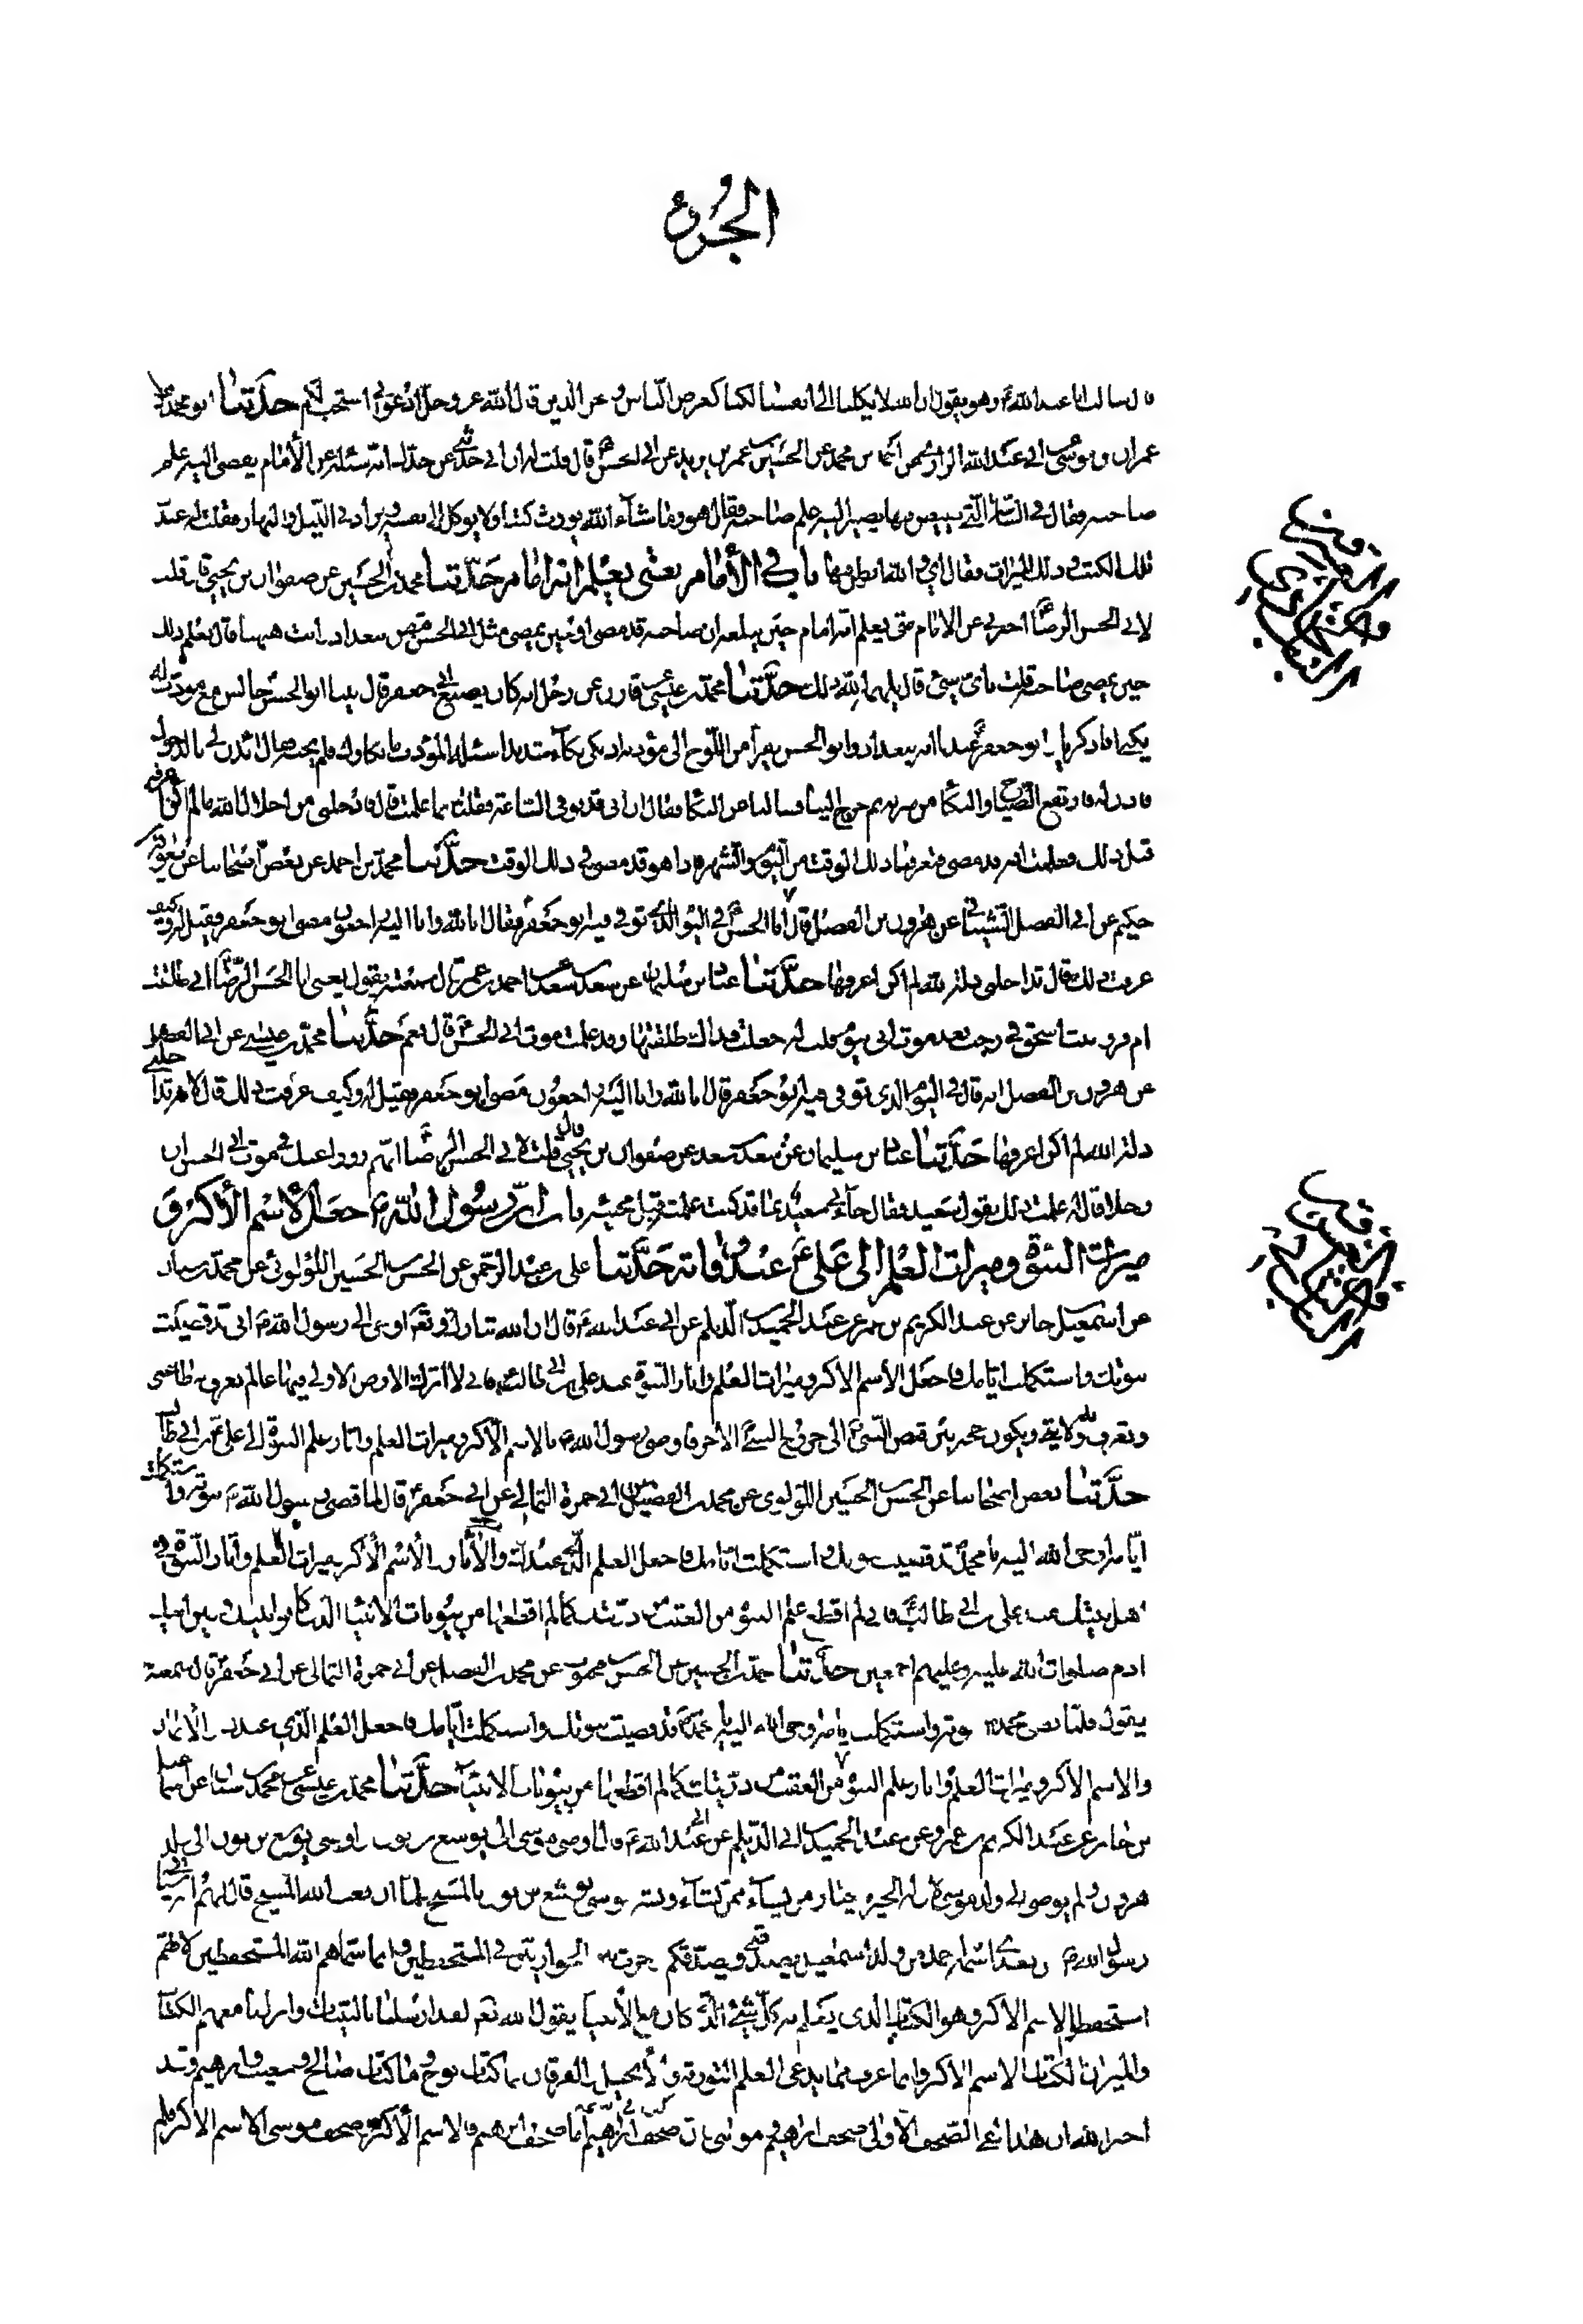 الجزء
سالت ابا عبد الله ع وهو يقول ان الله لا يكلنا الى انفسنا كعرض الناس و نحن الذين قال الله عز وجل ادعوني استجب لكم حدثنا ابو محمد عن
عمران بن موسى عن محمد عن الحسين بن عمر بن يزيد عن ابي الحسن قال قلت له ان ابي حدثني عن جدك انه سئله عن الأمام يفضى اليه علم
صاحبه فقال في الساعة التي يقبض فيها يصير اليه علم صاحبه فقال هو وما شاء الله يورث كتبا ولا يوكل الى نفسه ويزاد في الليل والنهار فقلت له عندك
تلك الكتب وذلك الميراث فقال اي والله انظر فيها باب في الأمام متى يعلم انه امام حدثنا محمد بن الحسين عن صفوان بن يحيى قال قلت
لابي الحسن الرضا اخبرني عن الامام متى يعلم انه امام حين يبلغه ان صاحبه قد مضى او حين يمضي مثل ابي الحسن قبض ببغداد وانت ههنا قال يعلم ذلك
حين يمضي صاحبه قلت باي شيء قال يلهمه الله ذلك حدثنا محمد بن عيسى عن قارن عن رجل انه كان رضيع ابي جعفر قال بينا ابو الحسن جالس مع مؤدب له
ابو جعفر عندنا انه ببغداد وابو الحسن يقرأ من اللوح الى مؤدبه اذ بكى بكاء شديدا سئله المؤدب ما بكاؤك فلم يجبه فقال ائذن لي بالدخول
فاذن له فارتفع الصياح والبكاء من منزله ثم خرج الينا فسالنا عن البكاء فقال ان ابي قد توفي الساعة فقلنا بما علمت قال قد دخلني من اجلال الله ما لم اكن اعرفه
قبل ذلك فعلمت انه قد مضى فتعرفنا ذلك الوقت من اليوم والشهر فاذا هو قد مضى في ذلك الوقت حدثنا محمد بن احمد عن بعض اصحابنا عن معوية بن
حكيم عن ابي الفضل الشيباني عن هرون بن الفضل قال رايت ابا الحسن في اليوم الذي توفي فيه ابو جعفر فقال انا لله وانا اليه راجعون مضى ابو جعفر فقيل له وكيف
عرفت ذلك قال تداخلني ذلة لله لم اكن اعرفها حدثنا عباد بن سليمان عن سعد بن سعد عن احمد بن عمر قال سمعته يقول يعني ابا الحسن الرضا اني طلقت
ام فروة بنت اسحق في رجب بعد موت ابي بيوم قلت له جعلت فداك طلقتها وقد علمت موت ابي الحسن قال نعم حدثنا محمد بن عيسى عن ابي الفضل
عن هرون بن الفضل انه قال في اليوم الذي توفي فيه ابو جعفر قال انا لله وانا اليه راجعون مضى ابو جعفر فقيل له وكيف عرفت ذلك قال لانه تداخلني
ذلة لله لم اكن اعرفها حدثنا عباد بن سليمان عن سعد بن سعد عن صفوان بن يحيى قال قلت لابي الحسن الرضا انهم رووا عنك في موت ابي الحسن ان
رجلا قال لك علمت ذلك بقول سعيد فقال جاءني سعيد بما قد كنت علمت قبل مجيئه باب ان رسول الله ص جعل الاسم الأكبر و
ميراث النبوة وميراث العلم الى علي ع عند وفاته حدثنا علي بن عبد الرحمن عن الحسن بن الحسين اللؤلؤي عن محمد بن سنان
عن اسمعيل بن جابر عن عبد الكريم بن عمرو عن عبد الحميد بن ابي الديلم عن ابي عبد الله ع قال ان الله تبارك وتعالى اوحى الى رسول الله ص اني قد قضيت
نبوتك واستكملت ايامك فاجعل الاسم الاكبر وميراث العلم واثار النبوة عند علي بن ابي طالب فاني لا اترك الارض الا ولي فيها عالم تعرف به طاعتي
وتعرف به ولايتي ويكون حجة بين قبض النبي الى خروج النبي الاخر فاوصى رسول الله ص بالاسم الاكبر وميراث العلم واثار علم النبوة الى علي بن ابي طالب
حدثنا بعض اصحابنا عن الحسن بن الحسين اللؤلؤي عن محمد بن الفضيل عن ابي حمزة الثمالي عن ابي جعفر قال لما قضى رسول الله ص نبوته واستكملت
ايامه اوحى الله اليه يا محمد قد قضيت نبوتك واستكملت ايامك فاجعل العلم الذي عندك والأثار والاسم الأكبر وميراث العلم واثار النبوة في
اهل بيتك عند علي بن ابي طالب فاني لم اقطع علم النبوة من العقب من ذريتك كما لم اقطعها من بيوتات الانبياء الذين كانوا بينك وبين ابيك
ادم صلوات الله عليه وعليهم اجمعين حدثنا محمد بن الحسين عن الحسن بن محبوب عن محمد بن الفضيل عن ابي حمزة الثمالي عن ابي جعفر قال سمعته
يقول فلما قضى محمد نبوته واستكملت ايامه اوحى الله اليه يا محمد قد قضيت نبوتك واستكملت ايامك فاجعل العلم الذي عندك والأثار
والاسم الاكبر وميراث العلم واثار علم النبوة في العقب من ذريتك كما لم اقطعها من بيوتات الانبياء حدثنا محمد بن عيسى عن محمد بن سنان عن اسماعيل
بن جابر عن عبد الكريم بن عمرو عن عبد الحميد بن ابي الديلم عن ابي عبد الله ع قال اوصى موسى الى يوشع بن نون واوصى يوشع بن نون الى ولد
هرون ولم يوص الى ولد موسى لان الله له الخيرة يختار من يشاء ممن يشاء وبشر موسى يوشع بن نون بالمسيح فلما ان بعث الله المسيح قال لهم انه سياتي
رسول الله من بعدي اسمه احمد من ولد اسمعيل يصدقني ويصدقكم وجرت بين الحواريين في المستحفظين وانما سماهم الله المستحفظين لانهم
استحفظوا الاسم الاكبر وهو الكتاب الذي يعلم به كل شيء الذي كان مع الأنبياء يقول الله تعم لقد ارسلنا رسلنا بالبينات وانزلنا معهم الكتاب
والميزان الكتاب الاسم الاكبر وانما عرف مما يدعى العلم التورية والأنجيل والفرقان فما كتاب نوح وما كتاب صالح وشعيب وابرهيم وقد
اخبر الله ان هذا لفي الصحف الأولى صحف ابرهيم وموسى فاين صحف ابراهيم اما صحف ابرهيم فالاسم الأكبر وصحف موسى الاسم الاكبر فلم